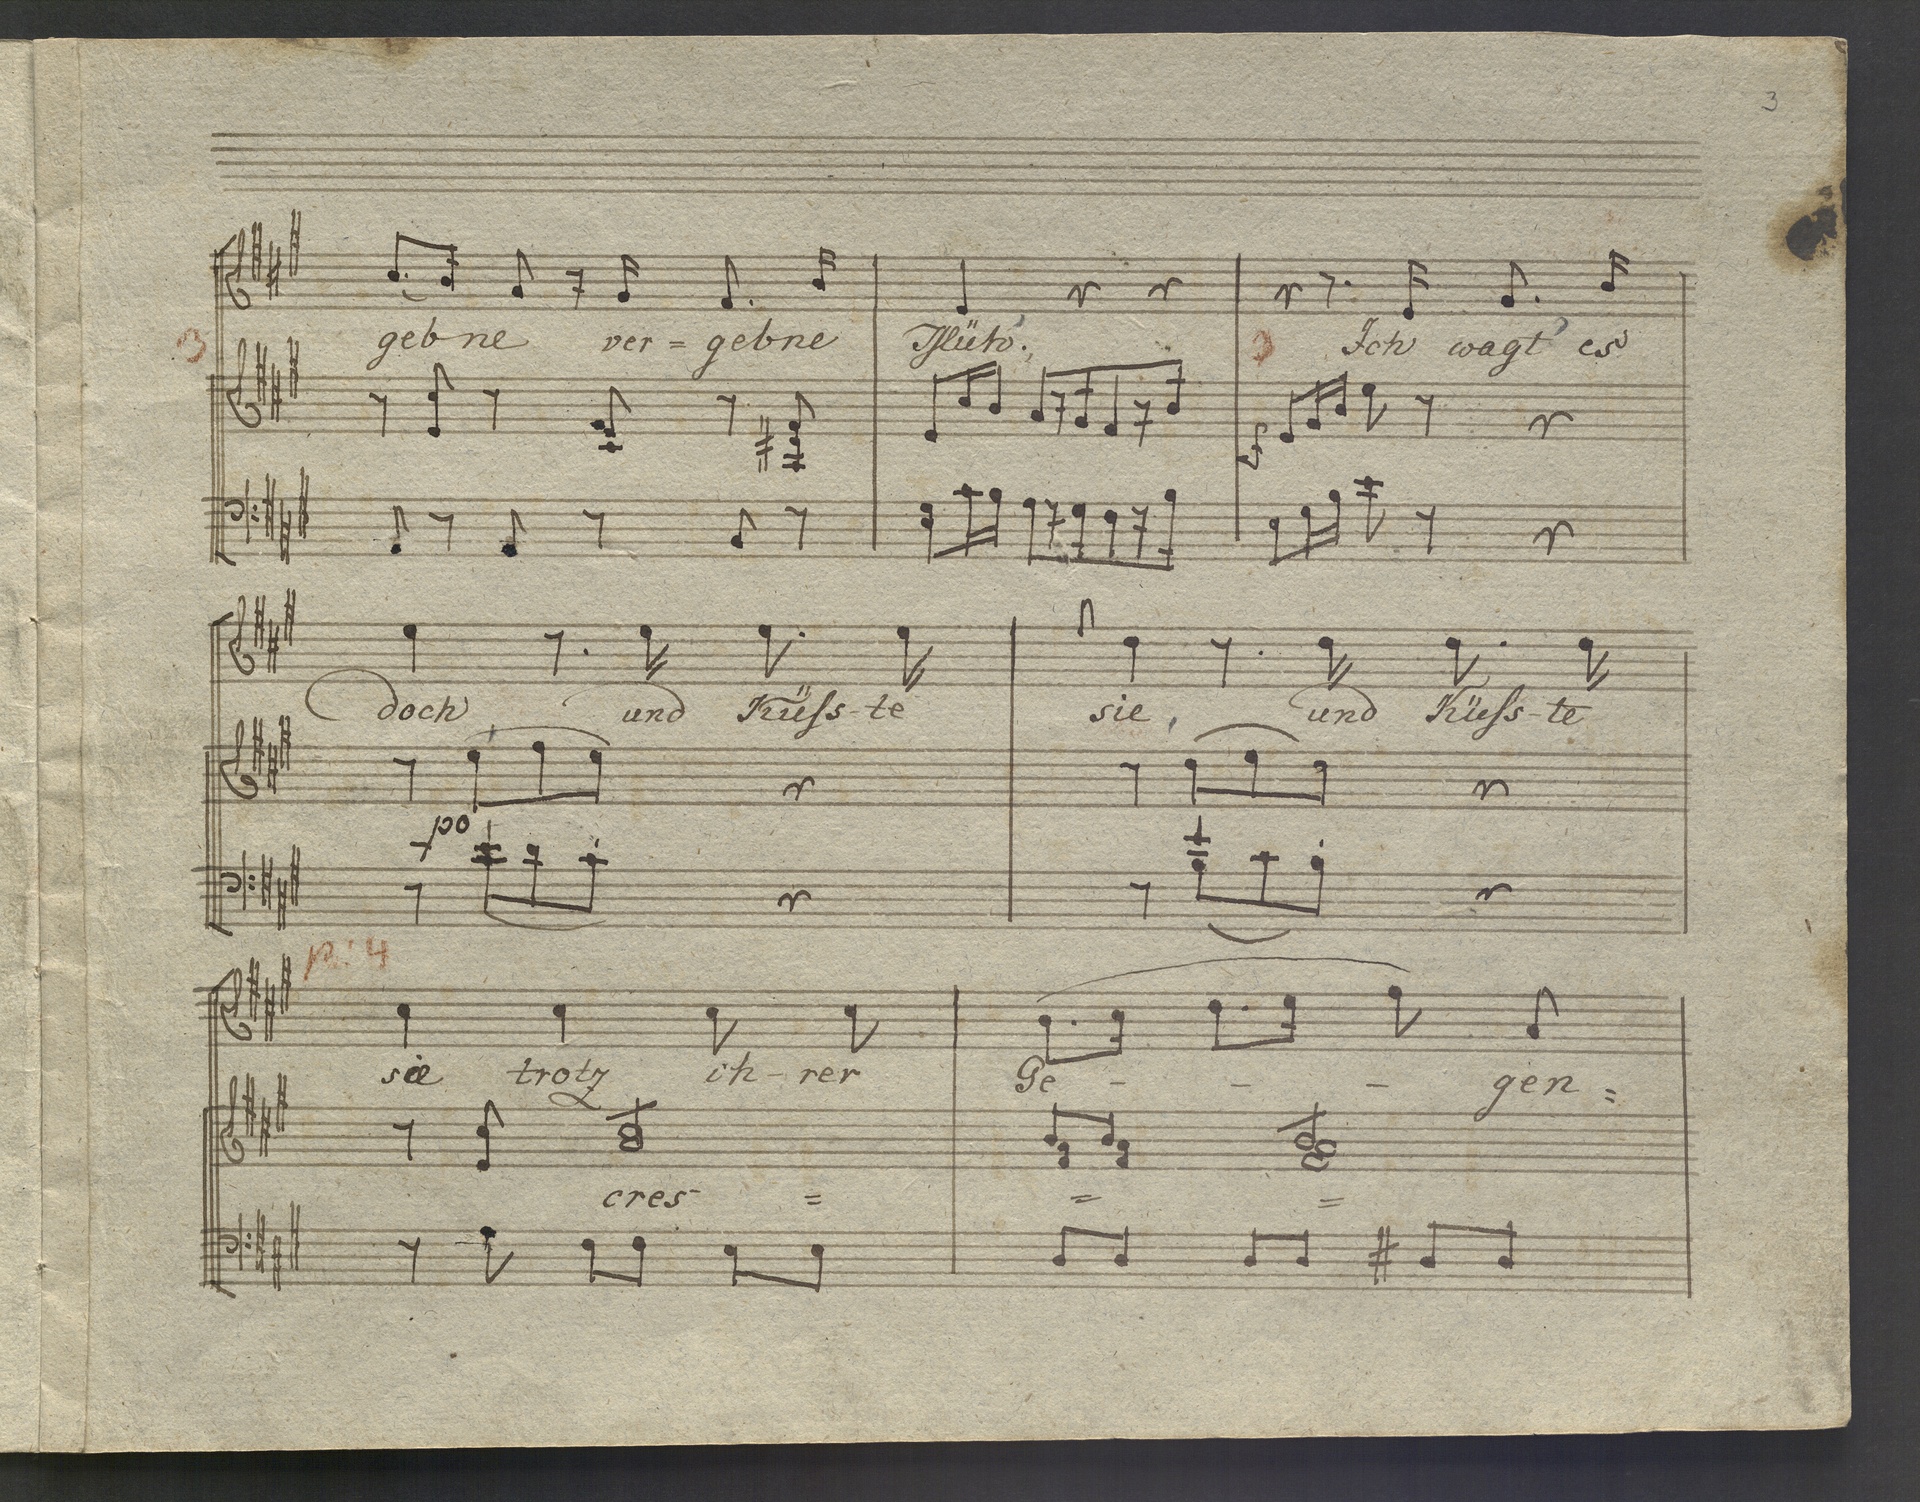 3
gebne ver = gebne Müh'. Ich wagt' es
3 3
doch und Küſs-te sie, und Küſs-te
po
p: 4
sie trotz ih - rer Ge - - - gen =
cres = = =